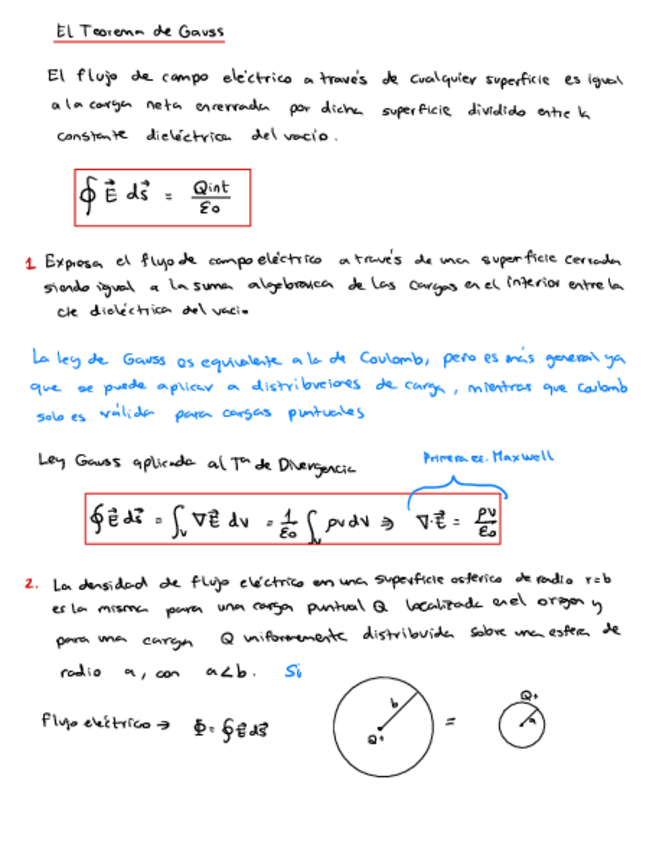 El Teorema de Gauss
El flujo de campo eléctrico a través de cualquier superficie es igual
a la carga neta encerrada por dicha superficie dividido entre la
constante dieléctrica del vacío.
∮ E⃗ ds⃗ = Qint / ε0
1 Expresa el flujo de campo eléctrico a través de una superficie cerrada
siendo igual a la suma algebraica de las cargas en el interior entre la
cte dieléctrica del vacío
La ley de Gauss es equivalente a la de Coulomb, pero es más general ya
que se puede aplicar a distribuciones de carga, mientras que Coulomb
solo es válida para cargas puntuales
Ley Gauss aplicada al Tª de Divergencia
Primera ec. Maxwell
∮ E⃗ ds⃗ = ∫v ∇E⃗ dv = 1/ε0 ∫v ρv dv ⇒ ∇·E⃗ = ρv/ε0
2. La densidad de flujo eléctrico en una superficie esférica de radio r=b
es la misma para una carga puntual Q localizada en el origen y
para una carga Q uniformemente distribuida sobre una esfera de
radio a, con a<b. Si
Flujo eléctrico → Φ = ∮ E⃗ ds⃗
b
Q+
=
Q+
a